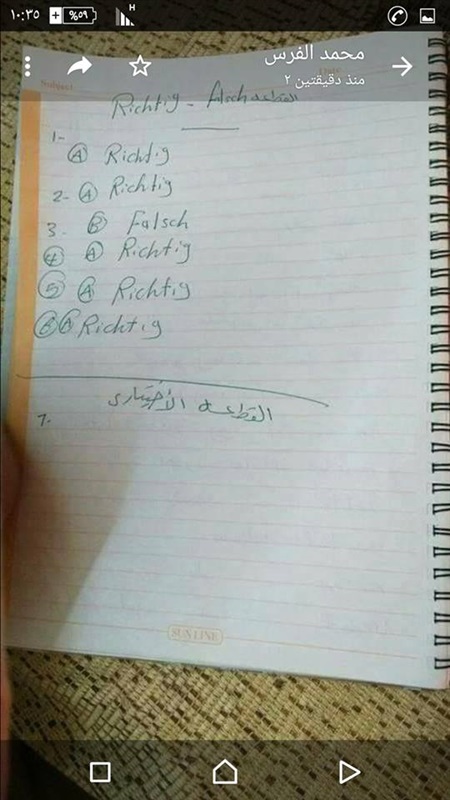 ١٠:٣٥
%٥٩
H
محمد الفرس
منذ دقيقتين ٢
Subject
Richtig - falsch القطعة
1-
A Richtig
2- A Richtig
3. B Falsch
4 A Richtig
5 A Richtig
6 A Richtig
القطعه الأختيارى
7.
SUN LINE